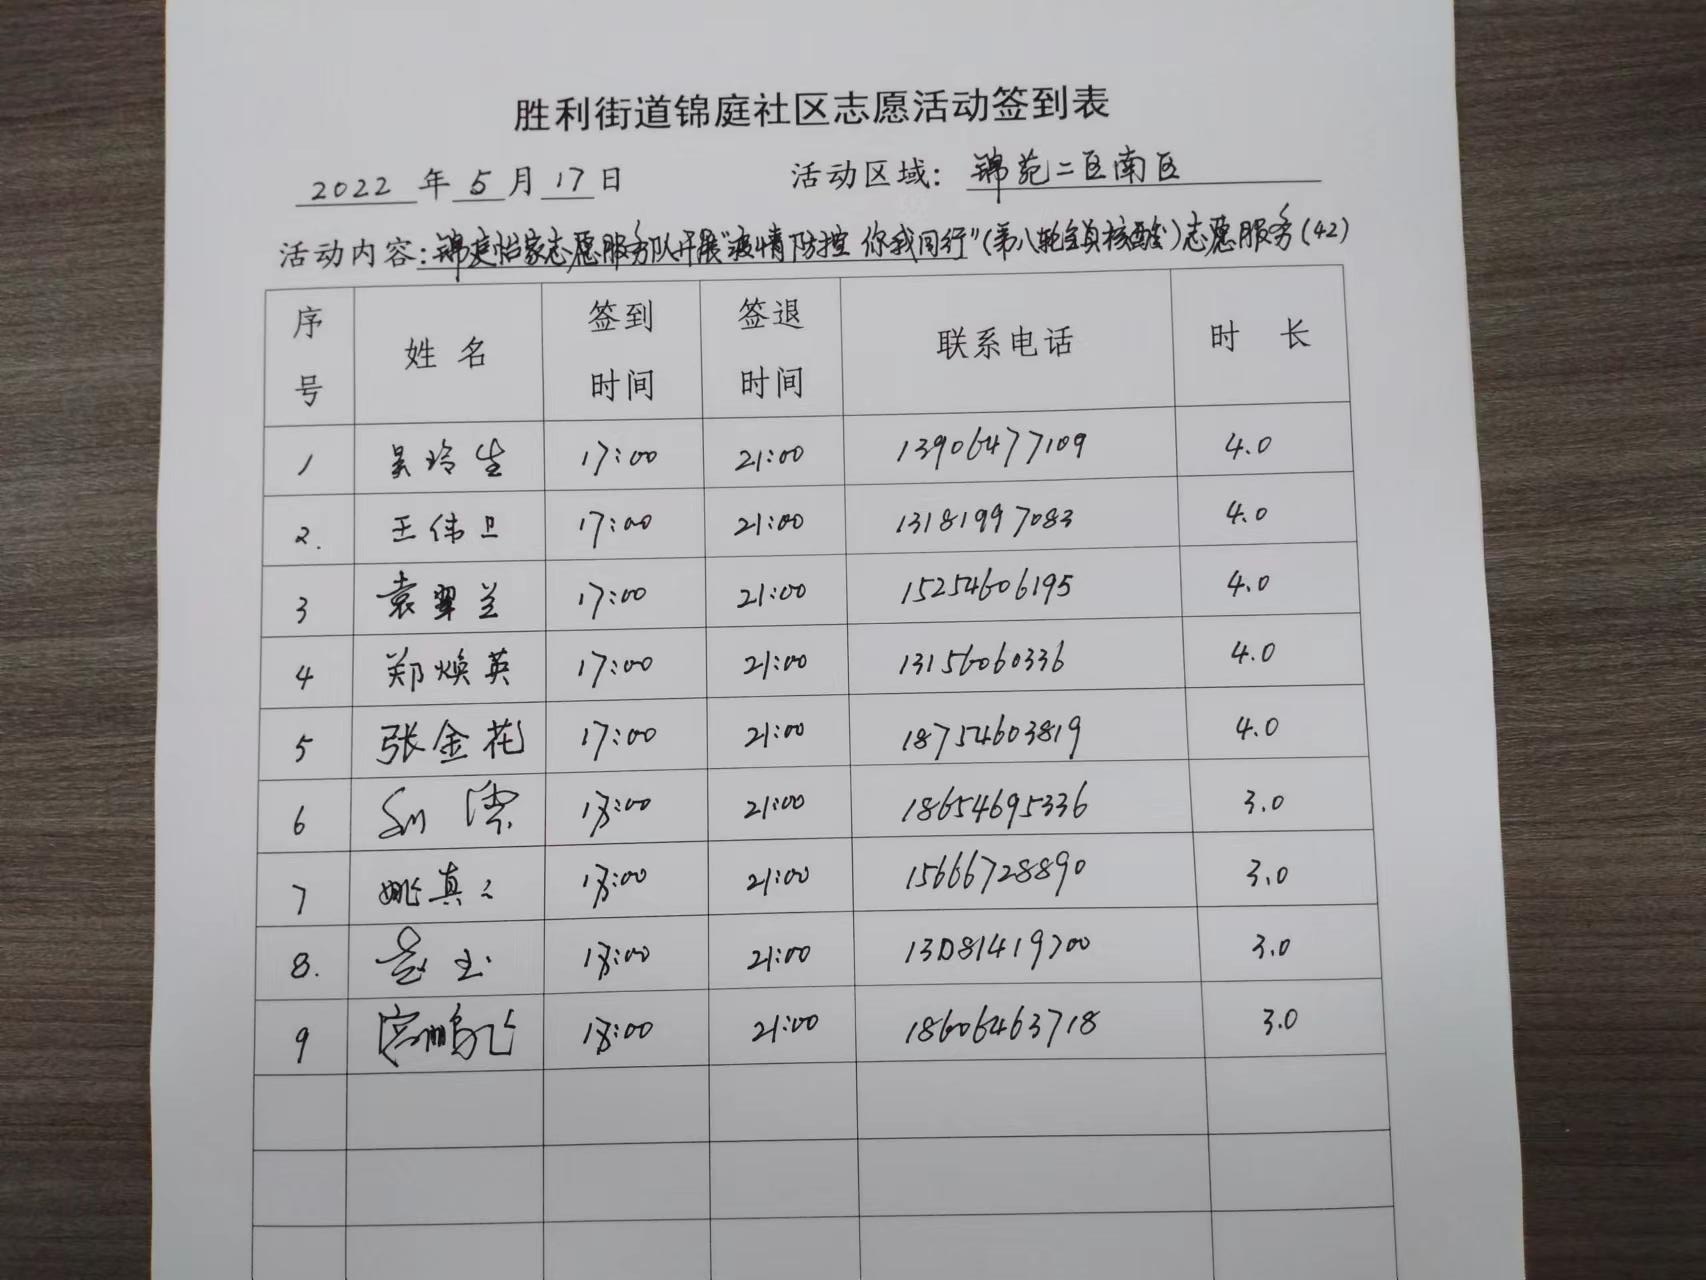 胜利街道锦庭社区志愿活动签到表
2022 年 5 月 17 日 活动区域：锦苑二区南区
活动内容：锦庭怡家志愿服务队开展“疫情防控 你我同行”（第八轮全员核酸）志愿服务（42）
序号 姓名 签到时间 签退时间 联系电话 时长
1 吴玲生 17:00 21:00 13906477109 4.0
2. 王伟卫 17:00 21:00 13181997083 4.0
3 袁翠兰 17:00 21:00 15254606195 4.0
4 郑焕英 17:00 21:00 13156060336 4.0
5 张金花 17:00 21:00 18754603819 4.0
6 18:00 21:00 18654695336 3.0
7 姚真 18:00 21:00 15666728890 3.0
8. 18:00 21:00 13081419700 3.0
9 宫鹏飞 18:00 21:00 18606463718 3.0